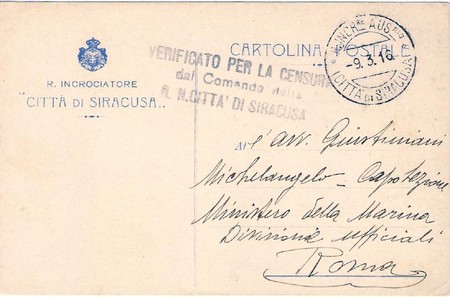 CARTOLINA POSTALE
R. INCROCIATORE
"CITTÀ DI SIRACUSA"
VERIFICATO PER LA CENSURA
dal Comando della
R. N. CITTA' DI SIRACUSA
R. INCRre AUSrio
-9.3.16
CITTA DI SIRACUSA
All'avv. Giustiniani
Michelangelo - Capo Sezione
Ministero della Marina
Divisione Ufficiali
Roma